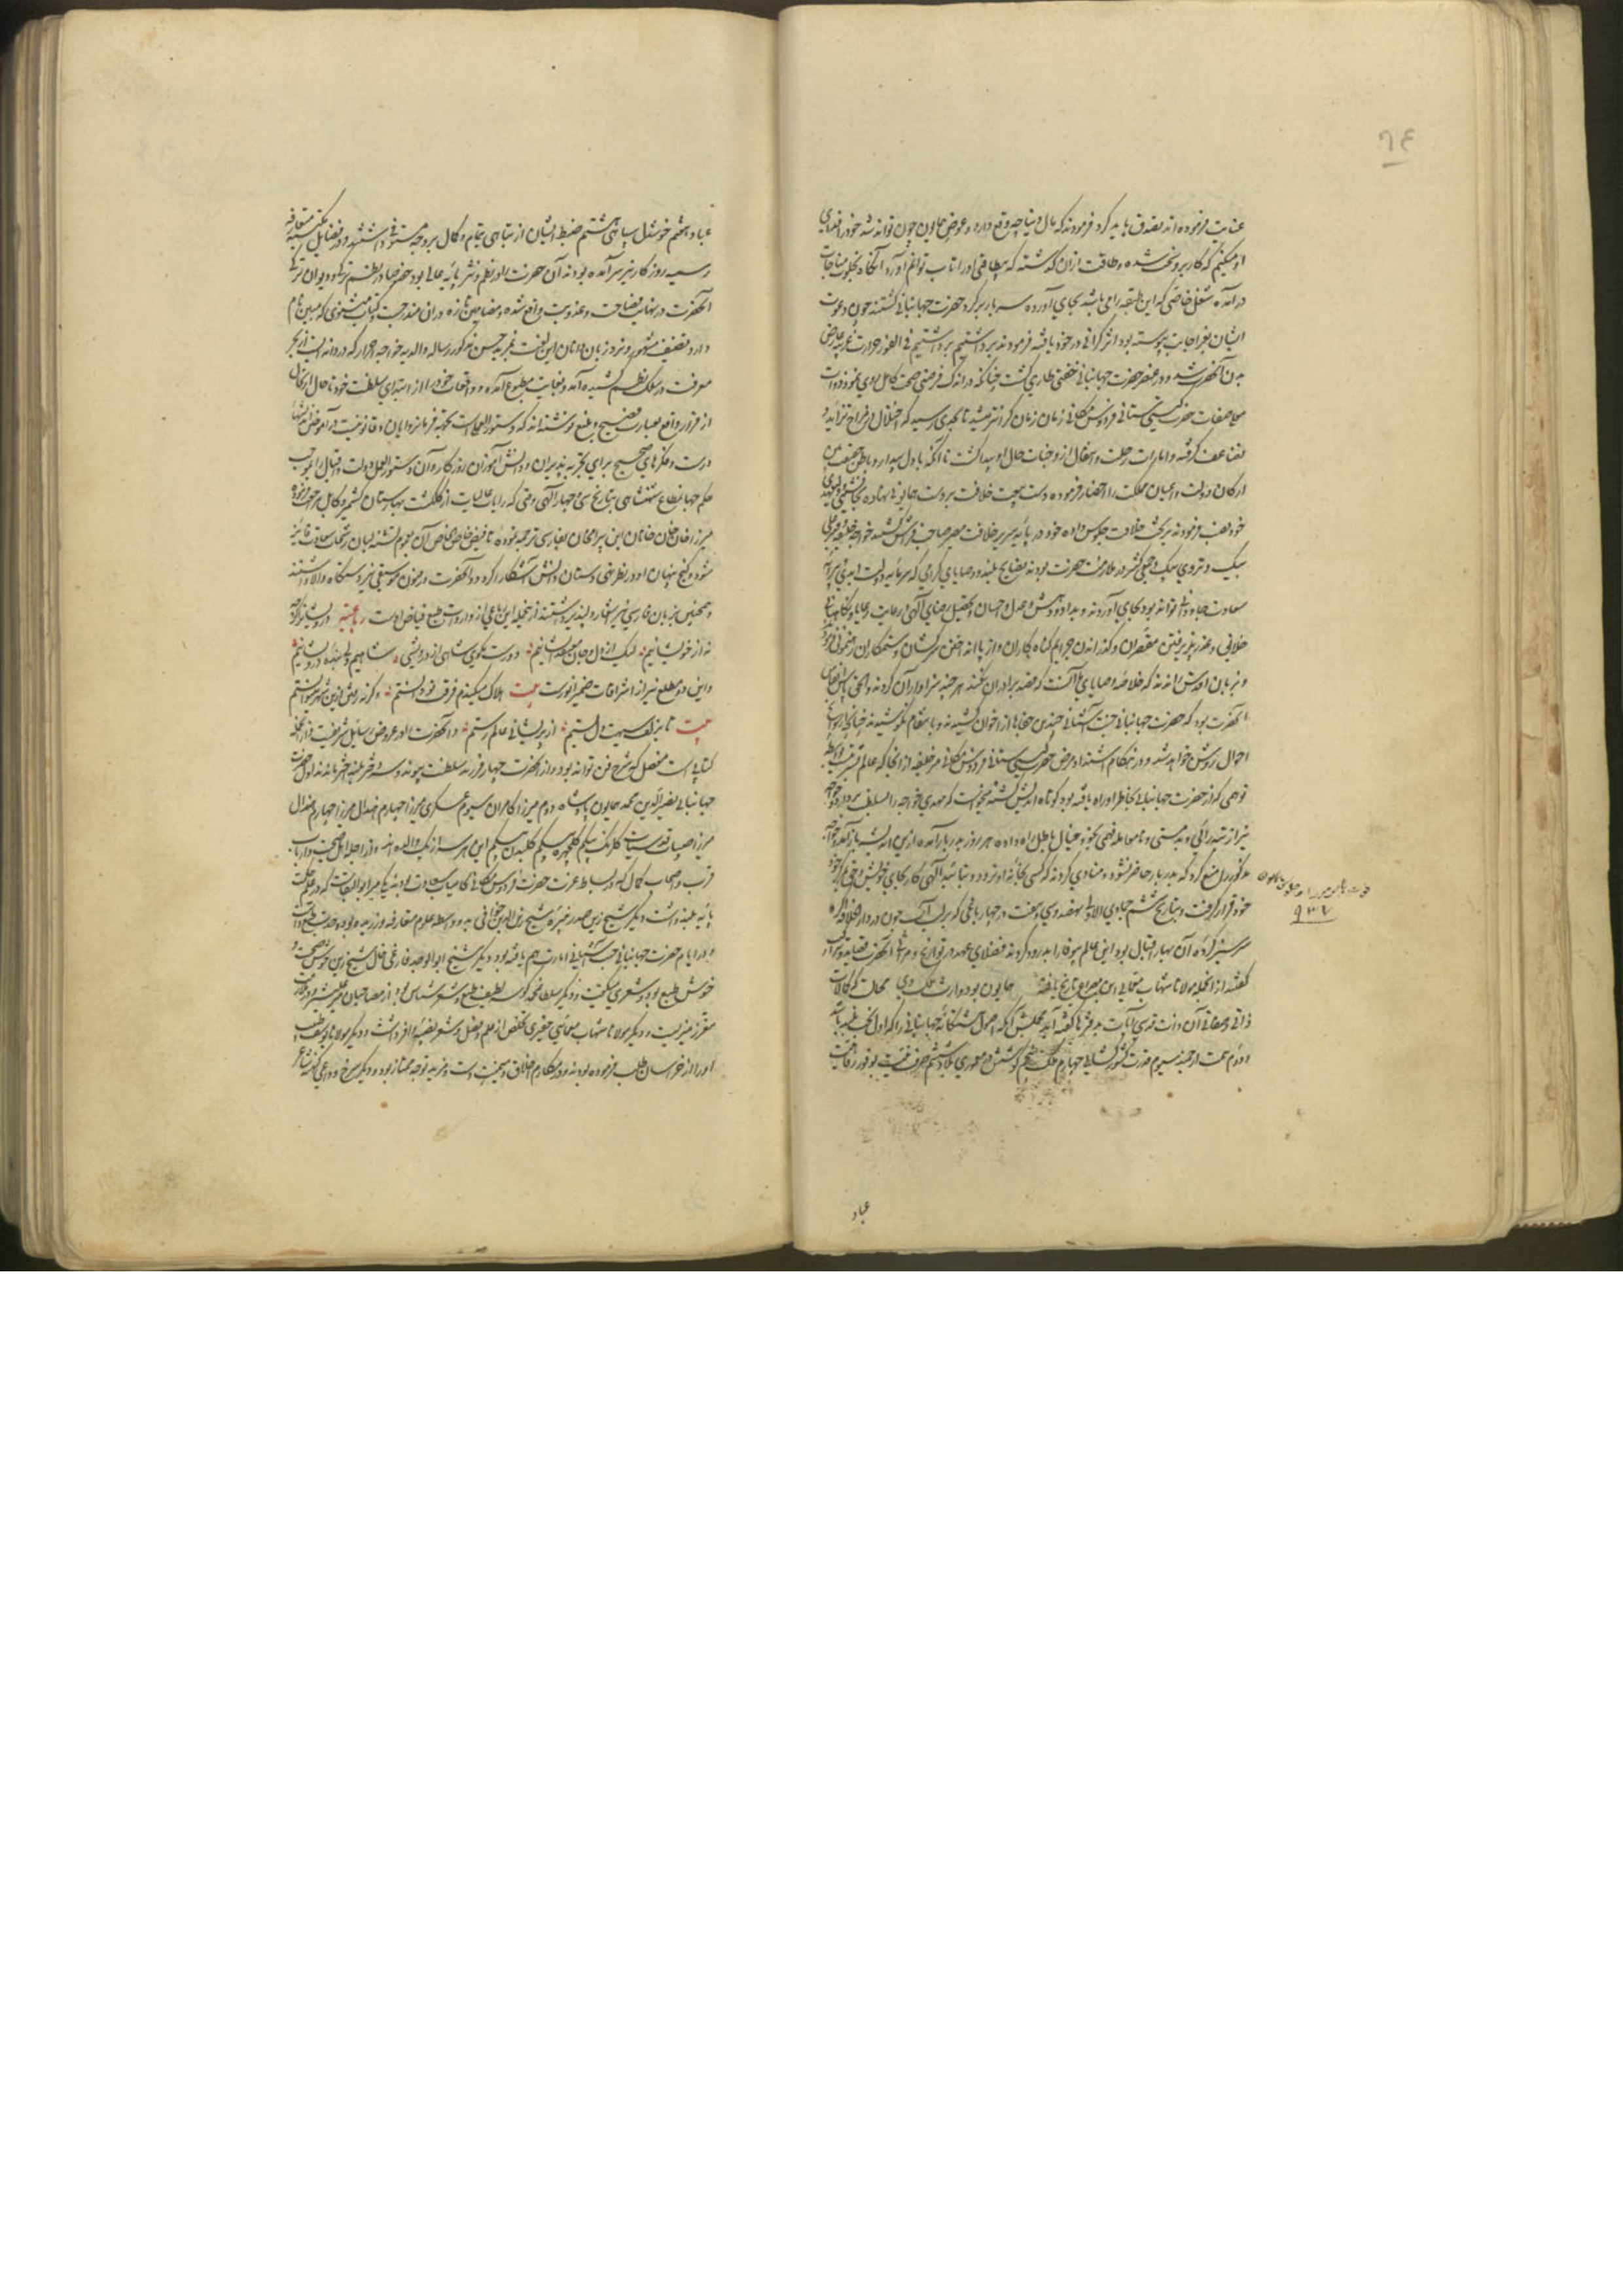 ۹٤
عنایت فرموده اند تصدق باید کرد فرمودند که مال دنیا چه وقع دارد و عوض همایون چون تواند شد خود را فدای
او میکنم که کار برو سخت شده و طاقت ازان گذشته که بیطاقتی او را تاب توانم آورد آنگاه بخلوت مناجات
در آمده شغل خاصی که این طبقه را می باشد بجای آورده سه بار بر گرد حضرت جهانبانی گشتند چون دعوت
ایشان بعز اجابت پیوسته بود اثر گرانی در خود یافته فرمودند برداشتیم برداشتیم فی الفور حرارت غریبه عارض
بدن آنحضرت شد و در عنصر حضرت جهانبانی خفتی طاری گشت چنانکه در اندک فرصتی صحت کامل روی نمود و ذات
معلی صفات حضرت گیتی ستانی فردوس مکانی زمان زمان گرانتر میشد تا بحدی رسید که اختلال مزاج تزاید و
تضاعف گرفته و امارات رحلت و انتقال از وجنات حال او پیدا گشت تا آنکه با دل بیدار و باطن حقیقت بین
ارکان دولت و اعیان مملکت را احضار فرموده دست بیعت خلافت بر دست همایونی نهاده بجانشینی و ولیعهدی
خود نصب فرمودند بر تخت خلافت جلوس داده خود در پایه سریر خلافت مصیر صاحب فراش گشتند خواجه خلیفه و قنبر علی
بیک و تردی بیک و جمعی کثیر در ملازمت حضرت بودند نصایح بلند و وصایای گرامی که سرمایه دولت ابدی و پیرایه
سعادت جاودانی تواند بود بجای آوردند و بداد و دهش و عدل و احسان و تحصیل رضای الهی و رعایت رعایا و نگاهبانی
خلائق و عذر پذیرفتن مقصران و گذراندن جرایم گناه کاران و از پا انداختن سرکشان و ستمکاران رهنمونی فرموده
و بزبان اقدس راندند که خلاصه وصایای ما آنست که قصد برادران نکند هر چند سزاوار آن گردند و الحق پاس انفاس
آنحضرت بود که حضرت جهانبانی جنت آشیانی چندین جفاها از اخوان کشیدند و بانتقام نکوشیدند چنانچه از سوانح
احوال روشن خواهد شد و در هنگام اشتداد مرض حضرت گیتی ستانی فردوس مکانی میر خلیفه ازانجا که عالم بشریت است بواسطه
توهمی که از حضرت جهانبانی بخاطر او راه یافته بود کوتاه اندیش گشته میخواست که مهدی خواجه را بسلطنت بردارد و خواجه
نیز از تیره رائی و بدمستی و نامعامله فهمی بخود خیال باطل راه داده هر روز بدربار آمده ازین اندیشه باز آمده خواجه
مذکور را منع کرد که بدربار حاضر نشود و منادی کردند که کسی بخانه او نرود و بتائید الهی کار بجای خویش و حق بمرکز خود
خود قرار گرفت و بتاریخ ششم جمادی الاولی نهصد و سی و هفت در چهار باغی که بر لب آب جون در دار الخلافه آگره
سر سبز کرده آن بهار اقبال بود این عالم بیوفا را بدرود کردند فضلای عهد در تواریخ و مراثی آنحضرت قصاید و تراکیب
گفتند از آنجمله مولانا شهاب معمائی این مصراع تاریخ یافته همایون بود وارث ملک وی محالست که کمالات
ذاتی و صفاتی آن ذات قدسی آیات بدفترها گفته آید مجملش آنکه اصول هشتگانه جهانبانی را که اول بخت بلند باشد
و دوم همت ارجمند سیوم قدرت کشور کشائی چهارم ملک گیری پنجم کوشش در معموری بلاد ششم صرف نیت بوفور رفاهیت
۹۳۷
عباد
عباد هفتم خوشدل سپاهی هشتم ضبط ایشان از تباهی بتمام و کمال بروجه مستوفی داشتند و در فضایل مکتسبه متعارفه
رسمیه روزگار نیز سر آمده بودند آن حضرت را در نظم و نثر پایه عالی بود خصوصا در نظم ترکی و دیوان ترکی
آنحضرت در نهایت فصاحت و عذوبت واقع شده و مضامین تازه دران مندرج است و کتاب مثنوی که مبین نام
دارد تصنیف مشهور و نزد زبان دانان این لغت بمزید تحسین مذکور رساله والدیه خواجه احرار که دردانه ایست از بحر
معرفت در سلک نظم کشیده آمد و بغایت مطبوع آمده و واقعات خود را از ابتدای سلطنت خود تا حال ارتحال
از قرار واقع بعبارت فصیح و بلیغ نوشته اند که دستور العملیست بجهت فرمانروایان و قانونیست در آموختن اندیشهای
درست و فکرهای صحیح برای تجربه پذیران و دانش آموزان روزگار و آن دستور العمل دولت و اقبال را بموجب
حکم جهانمطاع شهنشاهی بتاریخ سی و چهار الهی وقتی که رایات عالیات از گلگشت بهارستان کشمیر و کابل مراجعت فرموده
میرزا خان خانان ابن بیرامخان بفارسی ترجمه نموده تا فیض خاص الخاص آن عموم تشنه لبان رشحات سعادت فایز
شود و گنج پنهان او در نظر تهی دستان دانش آشکارا گردد و آنحضرت در فنون موسیقی نیز دستگاه والا داشتند
و همچنین بزبان فارسی نیز اشعار دلپذیر داشتند از جمله این رباعی از واردات طبع فیاض اوست رباعیه درویشانرا اگرچه
نه از خویشانیم لیک از دل و جان معتقد ایشانیم دورست مگوی شاهی از درویشی شاهیم ولی بنده درویشانیم
و این دو مطلع نیز از اشراقات ضمیر انورست بیت هلاک میکندم فرقت تو دانستم وگرنه رفتن ازین شهر میتوانستم
بیت تا بزلف سیهت دل بستیم از پریشانی عالم رستیم و آنحضرت را در عروض رسایل شریفست و از آنجمله
کتابیست مفصل که شرح فن تواند بود و از آنحضرت چهار فرزند سلطنت پیوند و سه دختر بلند اختر ماندند اول حضرت
جهانبانی نصیر الدین محمد همایون پادشاه دوم میرزا کامران سیوم عسکری میرزا چهارم هندال میرزا
میرزا صبیات قدسیات گلرنگ بیگم گلچهره بیگم گلبدن بیگم این هر سه از یک والده اند و از اجله اهل صحبت و ارباب
قرب و اصحاب کمال که در بساط عزت حضرت فردوس مکانی کامیاب سعادت بودند یکی میر ابو البقاست که در علم حکمت
پایه بلند داشت و دیگر شیخ زین صدر نبیره شیخ زین الدین خوافی بدو واسطه علوم متعارفه ورزیده بود و حدت طبع داشت
و در ایام حضرت جهانبانی جنت آشیانی امارت هم یافته بود دیگر شیخ ابو الوجد فارغی خال شیخ زین خوش صحبت و
خوش طبع بود و شعر میگفت و دیگر سلطان محمد کوسه لطیف طبع و شعر شناس بود از مصاحبان میر علیشیر و در ملازمت
معزز میزیست و دیگر مولانا شهاب معمائی حقیری تخلص از علم و فضل و شعر نصیبه وافر داشت و دیگر مولانا یوسفی طبیب
او را از خراسان طلب فرموده بودند و در مکارم اخلاق و میمنت دست و مزید توجه ممتاز بود و دیگر سرخ وداعی کهنه شاعر